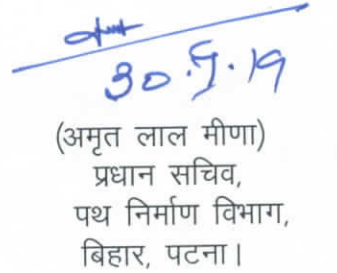 30.9.19
(अमृत लाल मीणा)
प्रधान सचिव,
पथ निर्माण विभाग,
बिहार, पटना।